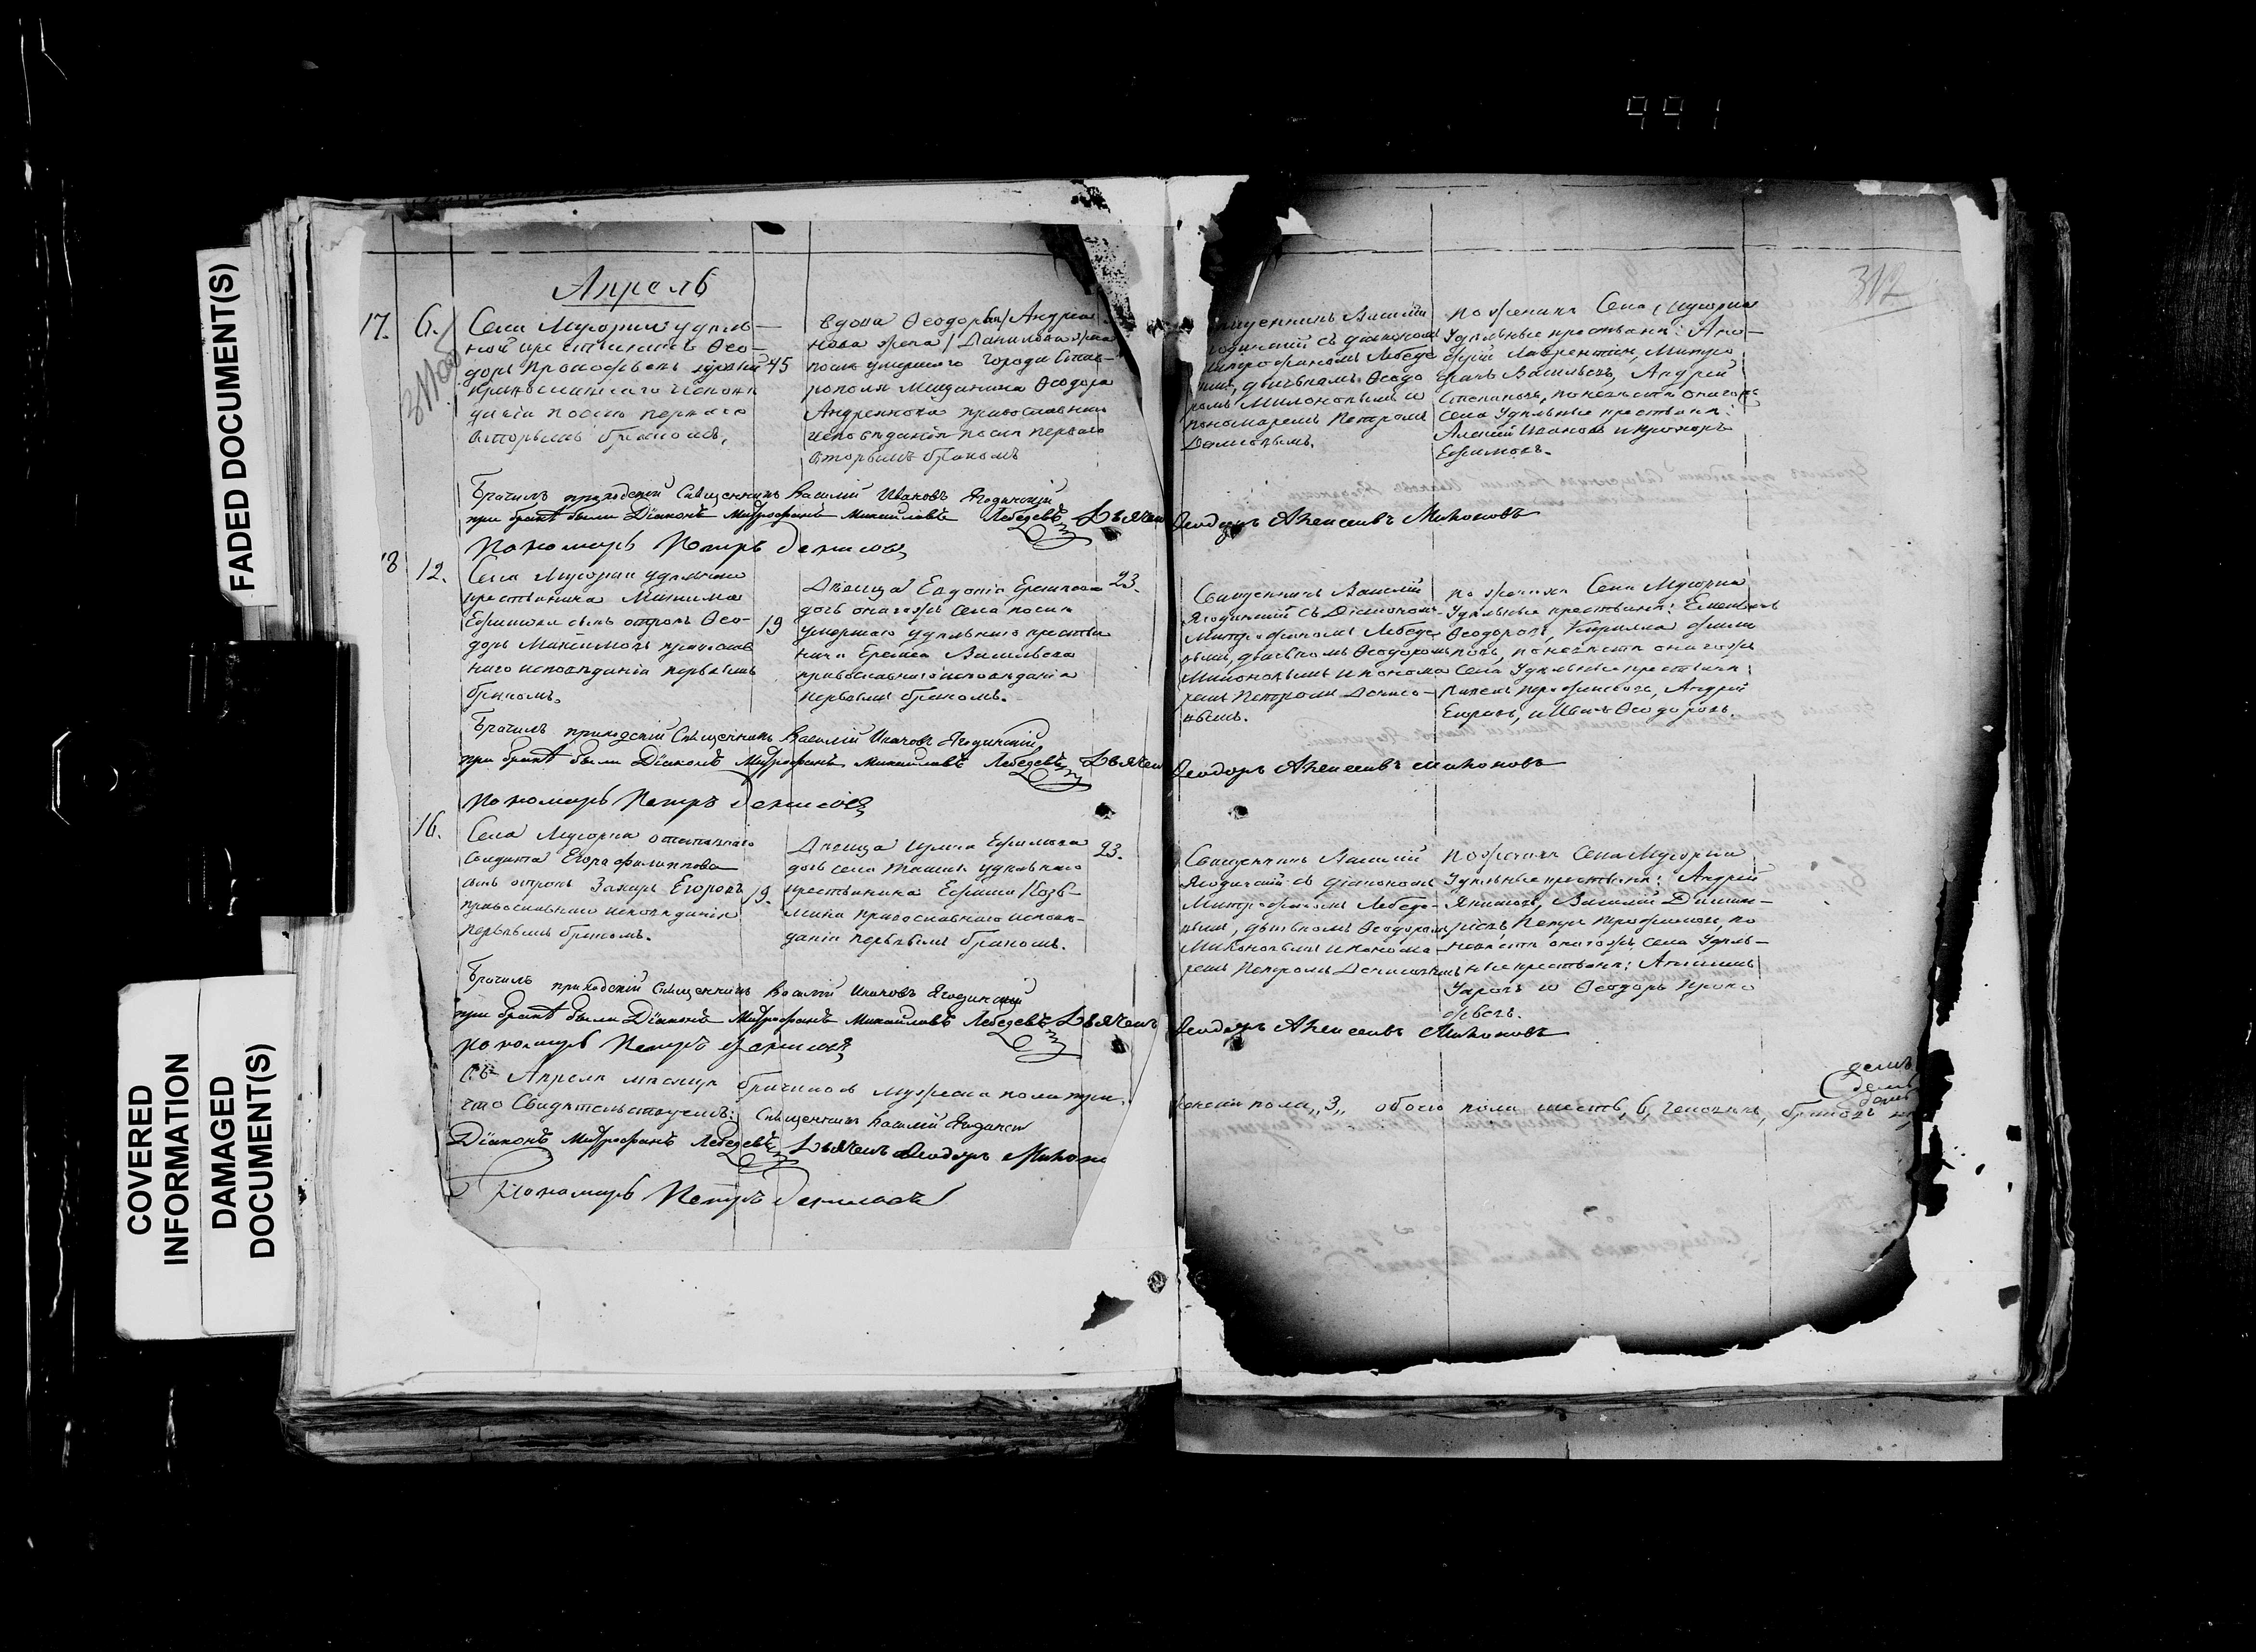 991
FADED DOCUMENT(S)
COVERED
INFORMATION
DAMAGED
DOCUMENT(S)
312
Апрель
17.
6.
Села Мусорки удѣль-
ной крестьянинъ Ѳео-
доръ Прокофьевъ
православнаго исповѣ
данія послѣ перваго
вторымъ бракомъ.
45
вдова Ѳеодорья Андреа
нова
послѣ умершаго города Став-
рополя мещанина Ѳеодора
православнаго
исповѣданія послѣ перваго
вторымъ бракомъ
Священникъ Василій
Ягодинскій съ діакономъ
Митрофаномъ Лебеде
вымъ, дьячкомъ Ѳеодо
ромъ Милоновымъ и
пономаремъ Петромъ
Денисовымъ.
по женихѣ Села Мусорки
Удѣльные крестьяне:
Лаврентіевъ, Митро
фанъ Васильевъ, Андрей
Степановъ, по невѣстѣ онагожъ
села Удѣльные крестьяне:
Алексѣй Ивановъ и Прохоръ
Ефимовъ.
Бракилъ приходскій Священникъ Василій Ивановъ Ягодинскій
при бракѣ были Діаконъ Митрофанъ Михайловъ Лебедевъ Дьячекъ Ѳеодоръ Алексеевъ Милоновъ
Пономарь Петръ Денисовъ
18
12.
Села Мусорки удѣльнаго
крестьянина Максима
Ефимова сынъ отрокъ Ѳео-
доръ Максимовъ православ
наго исповѣданія первымъ
бракомъ.
19
Дѣвица Евдокія Еремѣева
дочь онагожъ Села послѣ
умершаго удѣльнаго крестья
нина Еремѣя Васильева
православнаго исповѣданія
первымъ бракомъ.
23.
Священникъ Василій
Ягодинскій съ Діакономъ
Митрофаномъ Лебеде
вымъ, дьячкомъ Ѳеодоромъ
Милоновымъ и понома
ремъ Петромъ Денисо-
вымъ.
по женихѣ Села Мусорки
Удѣльные крестьяне: Емельянъ
Ѳеодоровъ, Кирилла Филип
повъ, по невѣстѣ онагожъ
Села Удѣльные крестьяне:
Андрей
Егоровъ, и Иванъ Ѳеодоровъ.
Бракилъ приходскій Священникъ Василій Ивановъ Ягодинскій
при бракѣ были Діаконъ Митрофанъ Михайловъ Лебедевъ Дьячекъ Ѳеодоръ Алексеевъ Милоновъ
Пономарь Петръ Денисовъ
16.
Села Мусорки отставнаго
Солдата Егора Филиппова
сынъ отрокъ Захаръ Егоровъ
православнаго исповѣданія
первымъ бракомъ.
19.
Дѣвица Ефимова
дочь села удѣльнаго
крестьянина Ефима Козь-
мина православнаго исповѣ-
данія первымъ бракомъ.
23.
Священникъ Василій
Ягодинскій съ діакономъ
Митрофаномъ Лебеде-
вымъ, дьячкомъ Ѳеодоромъ
Милоновымъ и понома-
ремъ Петромъ Денисовымъ
по женихѣ Села Мусорки
Удѣльные крестьяне: Андрей
Василій Димит-
ріевъ, Петръ Трофимовъ, по
невѣстѣ онагожъ села Удѣль-
ные крестьяне:
и Ѳеодоръ Проко
фьевъ.
Бракилъ приходскій Священникъ Василій Ивановъ Ягодинскій
при бракѣ были Діаконъ Митрофанъ Михайловъ Лебедевъ Дьячекъ Ѳеодоръ Алексеевъ Милоновъ
пономарь Петръ Денисовъ
Въ Апрелѣ мѣсяцѣ мужеска пола три, женска пола „3„ обоего пола шесть, 6, человѣкъ, браковъ
что Свидѣтельствуемъ: Священникъ Василій Ягодинскій
Діаконъ Митрофанъ Лебедевъ Дьячекъ Ѳеодоръ Милоно
Пономарь Петръ Денисовъ